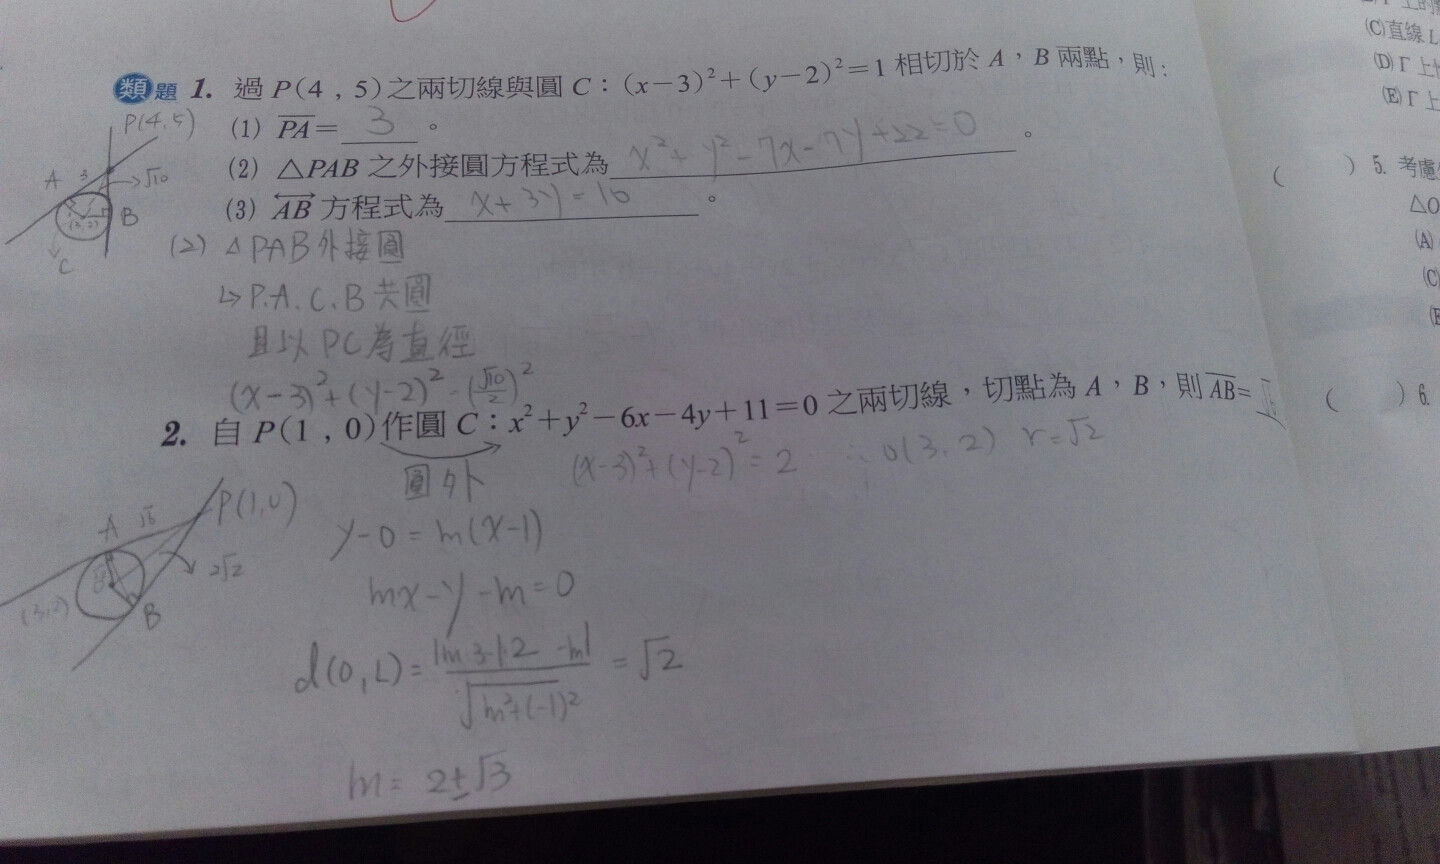 類題 1. 過 P(4,5)之兩切線與圓 C:(x-3)²+(y-2)²=1 相切於 A,B 兩點,則:
P(4,5)
(1) PA= 3 。
(2) △PAB 之外接圓方程式為 x²+y²-7x-7y+22=0 。
A 3 →√10
(3) AB 方程式為 x+3y=10 。
B
(3,2)
C
(2) △PAB外接圓
↳ P.A.C.B 共圓
且以 PC 為直徑
(x-3)²+(y-2)²-(√10/2)²
2. 自 P(1,0)作圓 C:x²+y²-6x-4y+11=0 之兩切線,切點為 A,B,則 AB=
圓外
(x-3)²+(y-2)²=2 ∴O(3,2) r=√2
P(1,0)
A √6
2√2
(3,2)
B
y-0=m(x-1)
mx-y-m=0
d(O,L)=|m·3-1·2-m|/√m²+(-1)²=√2
m=2±√3
(C)直線 L
(D) Γ 上
(E) Γ 上
( ) 5. 考慮
△O
(A)
(C)
(E
( ) 6.